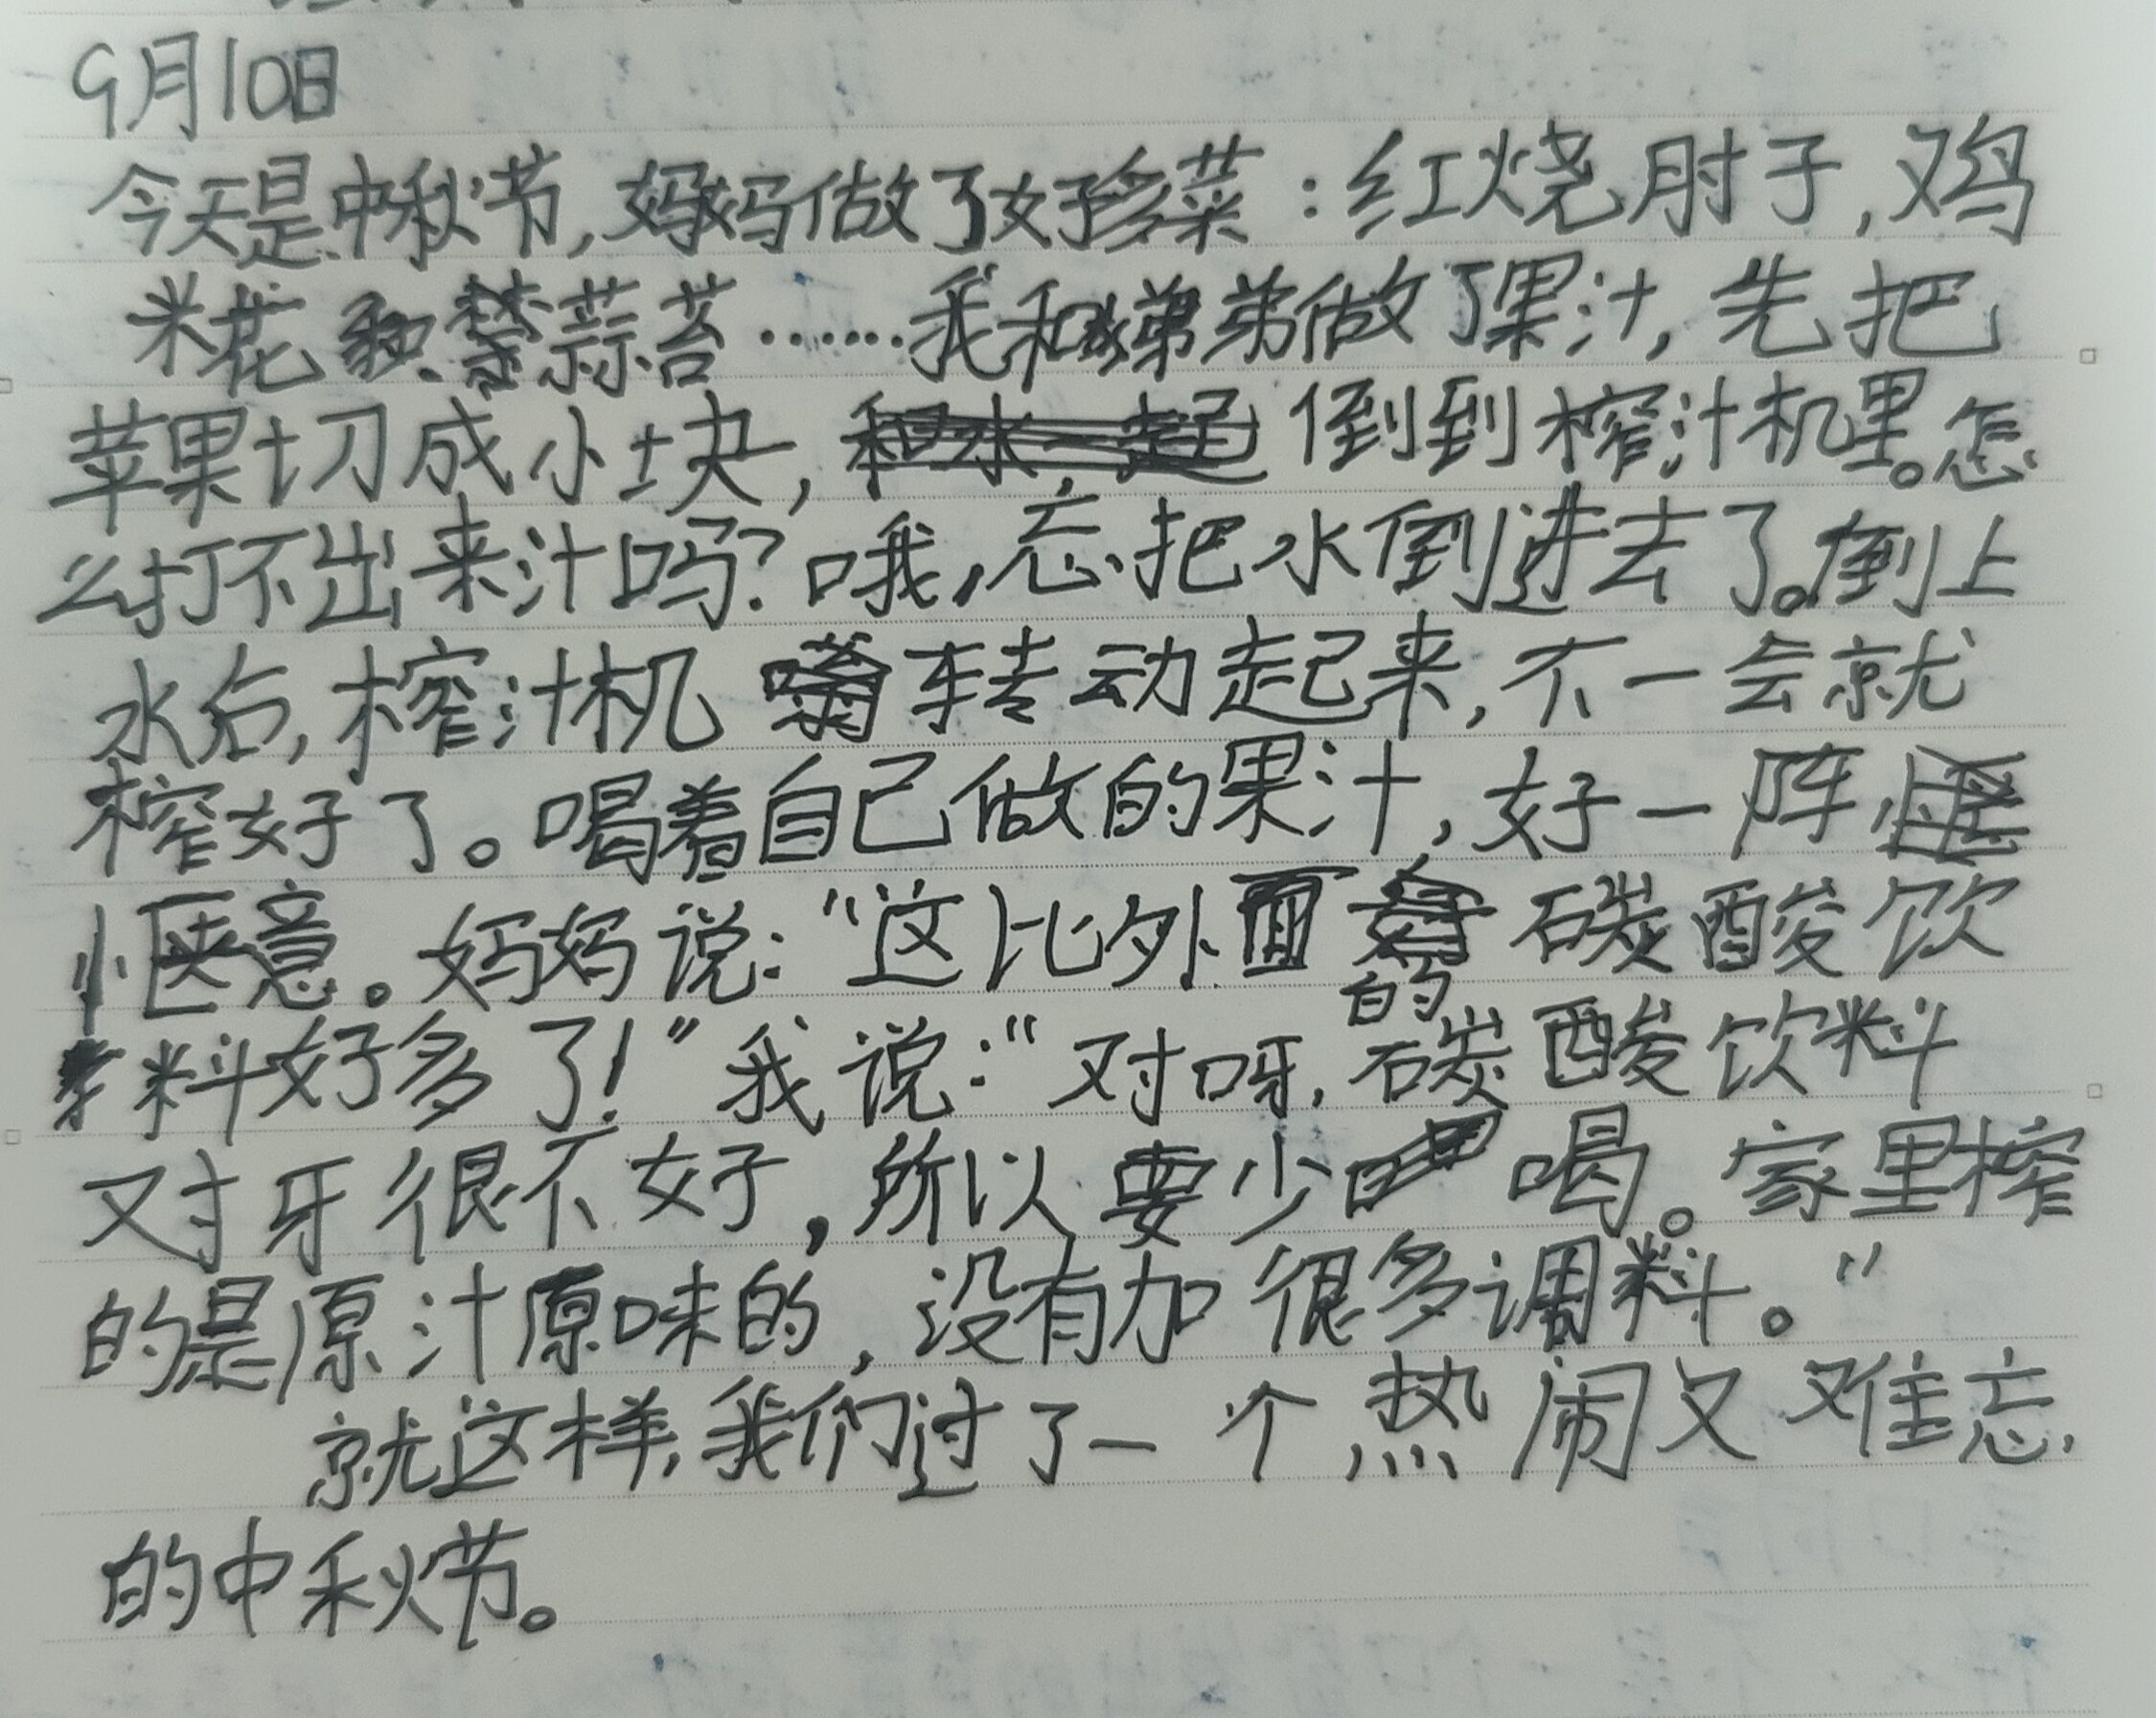 9月10日
今天是中秋节,妈妈做了好多菜:红烧肘子,鸡
米花、蒜苔……我和弟弟做了果汁,先把
苹果切成小块,倒到榨汁机里。怎
么打不出来汁吗?哦,忘把水倒进去了。倒上
水后,榨汁机转动起来,不一会就
榨好了。喝着自己做的果汁,好一阵
惬意。妈妈说:“这比外面的碳酸饮
料好多了!”我说:“对呀,碳酸饮料
对牙很不好,所以要少喝。家里榨
的是原汁原味的,没有加很多调料。”
就这样,我们过了一个热闹又难忘
的中秋节。